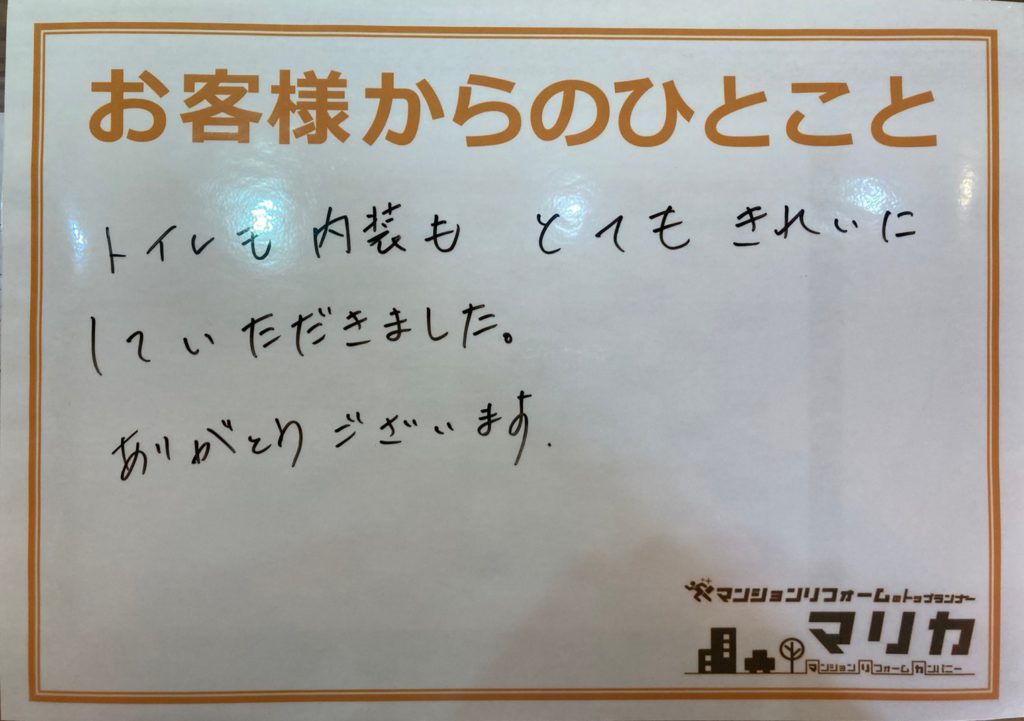 お客様からのひとこと
トイレも内装も とてもきれいに
していただきました。
ありがとうございます.
マンションリフォームのトップランナー
マリカ
マンションリフォームカンパニー